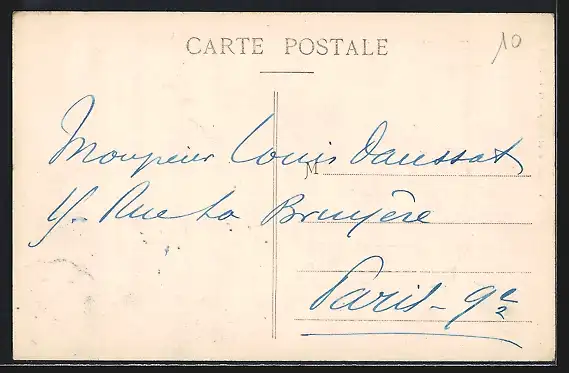 CARTE POSTALE
10
Monsieur Louis Daussat
M
4. Rue La Bruyère
Paris - 9e